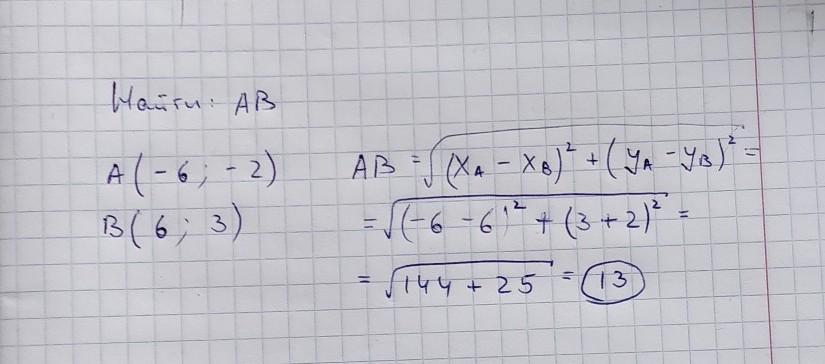 Найти: AB
A(-6; -2)
B(6; 3)
AB = √(x_A - x_B)² + (y_A - y_B)² =
= √(-6 - 6)² + (3 + 2)² =
= √144 + 25 = 13